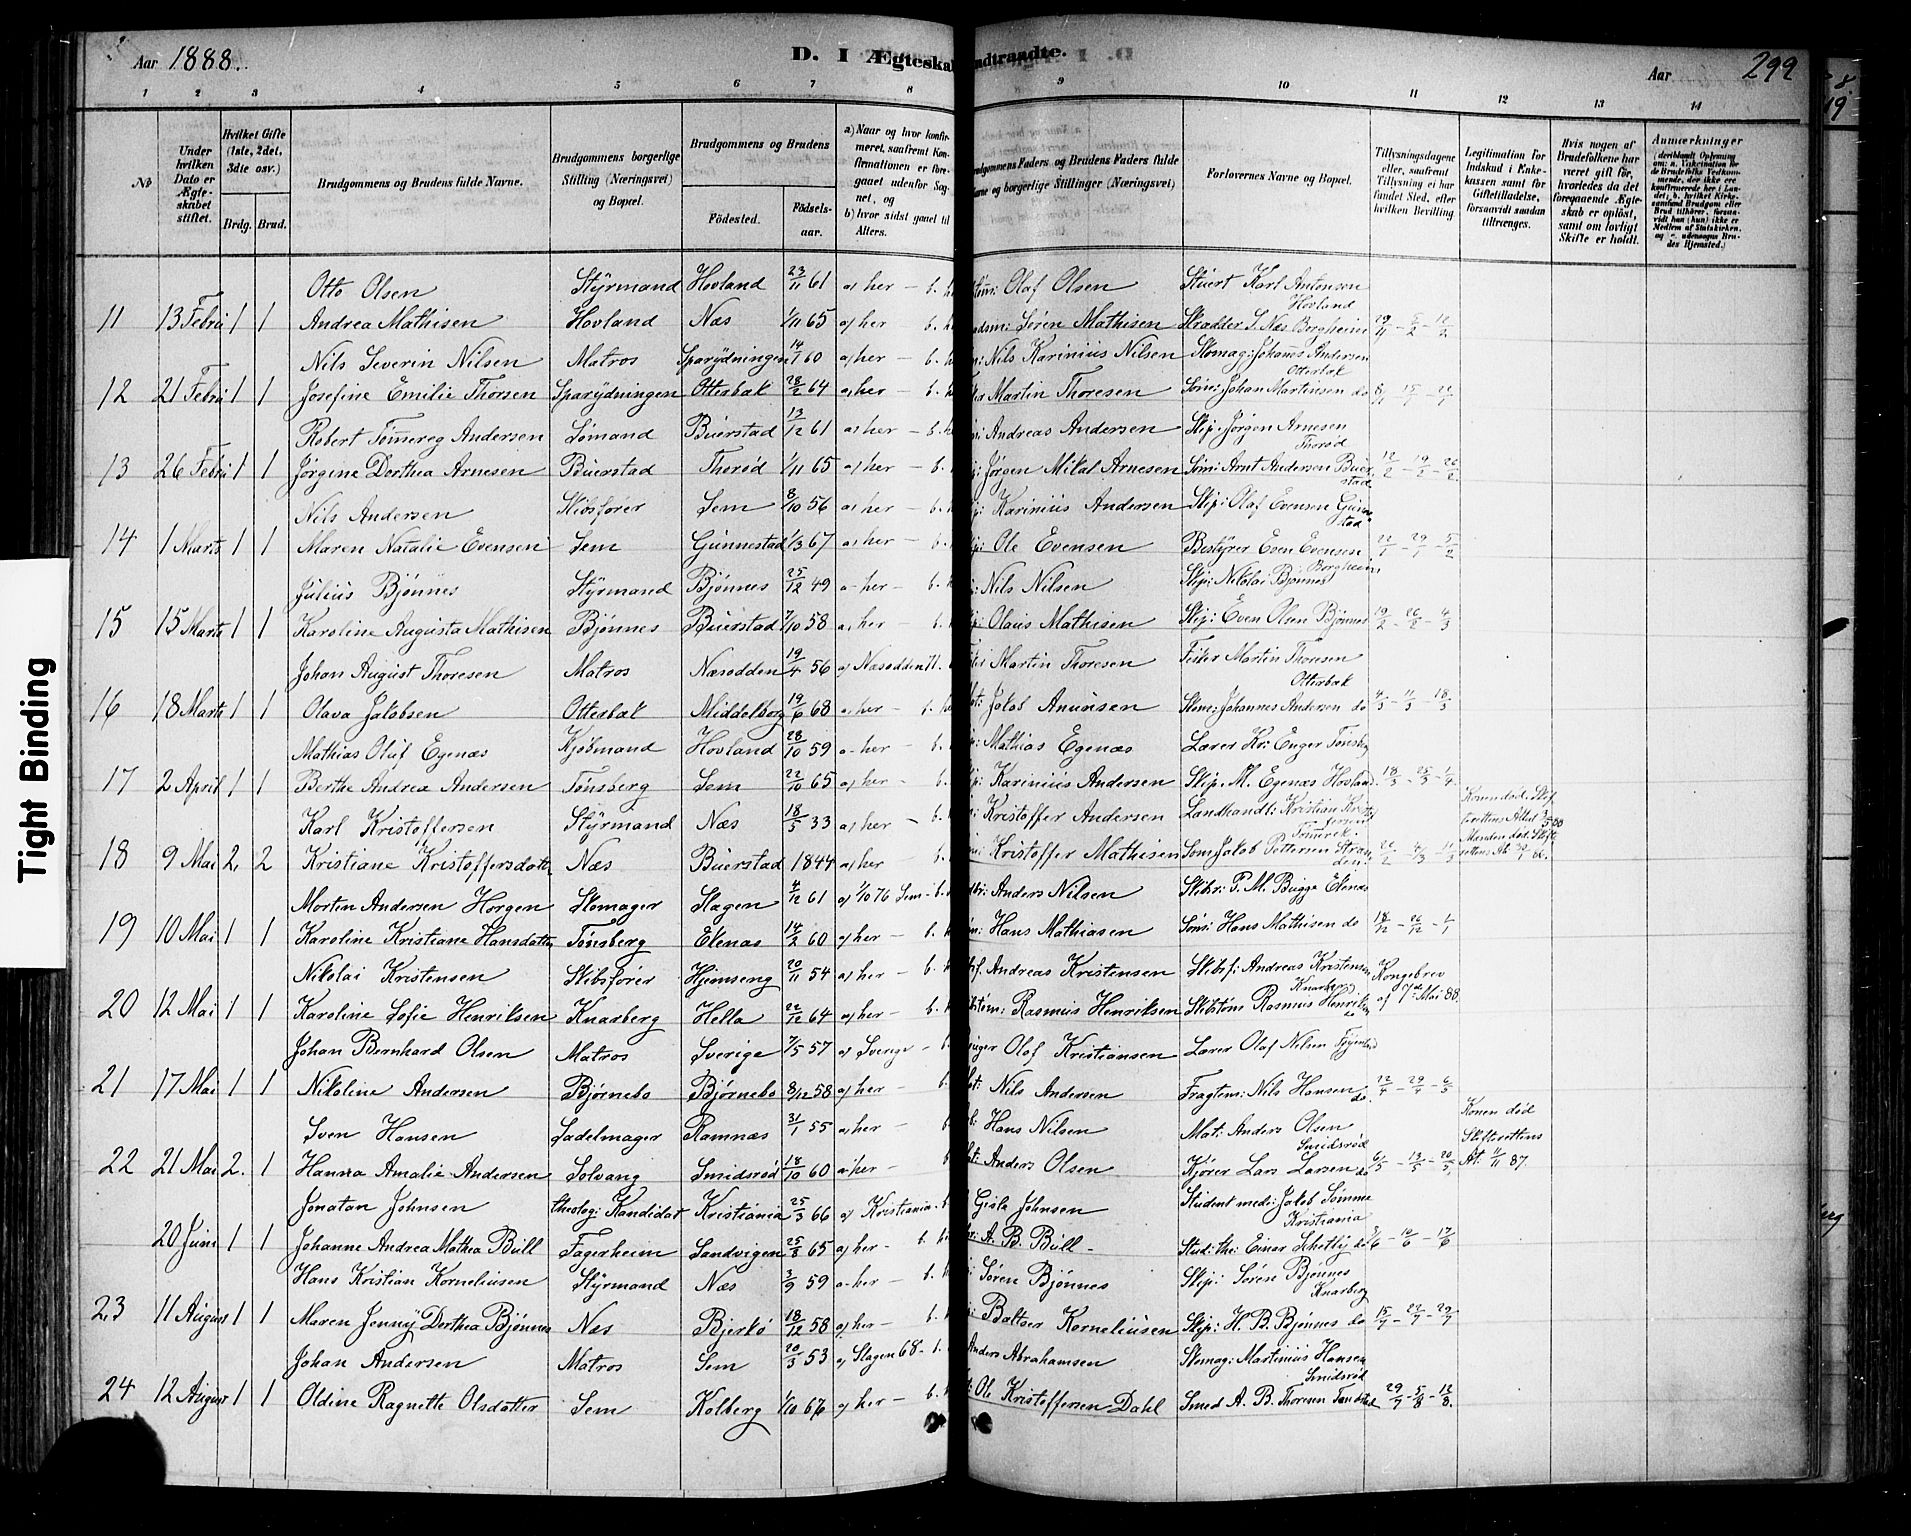 Aar 1888.
D. I Ægteska
ndtraadte.
Aar 299
1 2 3 4 5 6 7 8 9 10 11 12 13 14
No
Under hvilken Dato er Ægteskabet stiftet.
Hvilket Gifte (1ste, 2det, 3die osv.)
Brdg. Brud.
Brudgommens og Brudens fulde Navne.
Brudgommens borgerlige Stilling (Næringsvei) og Bopæl.
Brudgommens og Brudens
Fødested.
Fødselsaar.
a) Naar og hvor konfirmeret, saafremt Konfirmationen er foregaaet udenfor Sognet, og
b) hvor sidst gaaet til Alters.
Faders og Brudens Faders fulde
og borgerlige Stillinger (Næringsvei)
Forlovernes Navne og Bopæl.
Tillysningsdagene eller, saafremt Tillysning ei har fundet Sted, efter hvilken Bevilling.
Legitimation for Indskud i Enkekassen samt for Giftetilladelse, forsaavidt saadan tiltrænges.
Hvis nogen af Brudefolkene har været gift før, hvorledes da det foregaaende Ægteskab er opløst, samt om lovligt Skifte er holdt.
Anmærkninger
Otto Olsen Styrmand Hovland 23/11 61 a) her b. Olaf Olsen Stuert Karl Antonsen Hovland
11 13 Febru 1 1 Andrea Mathisen Hovland Næs 1/11 65 a) her b. Søren Mathisen Skrædder S. Næs Borgheim 29/11 - 5/2 - 12/2
Nils Severin Nilsen Matros Sparydningen 14/1 60 a) her - b. Nils Karinius Nilsen Skomag: Johans Andersen Otterbæk
12 21 Febru 1 1 Josefine Emilie Thorsen Sparydningen Otterbæk 28/2 64 a) her - b. Martin Thoresen Søm: Johan Martinsen do
Robert Tømereg Andersen Sømand Buerstad 13/12 61 a) her - b. Andreas Andersen Skip. Jørgen Arnesen Thorød
13 26 Febru 1 1 Jørgine Dorthea Arnesen Buerstad Thorød 1/11 65 a) her - b. Jørgen Mikal Arnesen Søm: Arnt Andersen Buerstad 12/2 - 19/2 - 26/2
Nils Andersen Skibsfører Sem 8/10 56 a) her - b. Karinius Andersen Skip: Olaf Evensen Gunnestad
14 1 Marts 1 1 Maren Natalie Evensen Sem Gunnestad 1/3 67 a) her b. Ole Evensen Bestyrer Even Evensen Borgheim 22/1 - 29/1 - 5/2
Julius Bjønnes Styrmand Bjønnes 25/12 49 a - her - b. Nils Nilsen Skip: Nikolai Bjønnes
15 15 Marts 1 1 Karoline Augusta Mathisen Bjønnes Buerstad 7/10 58 a) her b. Olaus Mathisen Skip: Even Olsen Bjønnes 19/2 - 26/2 - 4/3
Johan August Thoresen Matros Næsodden 19/4 56 a) Næsodden Martin Thoresen Fisker Martin Thoresen Otterbæk
16 18 Marts 1 1 Olava Jakobsen Otterbæk Middelborg 19/6 68 a) her - b. Jakob Anunsen Skom: Johannes Andersen do 4/3 - 11/3 - 18/3
Mathias Oluf Egenæs Kjøbmand Hovland 28/10 59 a - her - b. Mathias Egenæs Lærer Kr: Enger Tønsberg
17 2 April 1 1 Berthe Andrea Andersen Tønsberg Sem 22/10 65 a) her - b. Karinius Andersen Skip. M. Egenæs Hovland 18/3 - 25/3 - 1/4
Karl Kristoffersen Styrmand Næs 18/5 33 a) her - b. Kristoffer Andersen Landhandl: Kristian Kristoffersen Konen død. Skifterettens Attest
18 9 Mai 2. 2 Kristiane Kristoffersdatter Næs Buerstad 1844 a) her b. Kristoffer Mathisen Søm Jakob Pettersen Stranden 26/2 - 4/3 - 11/3 Manden død. Skifterettens At.
Morten Andersen Horgen Skomager Slagen 4/12 61 a) 1/10 76 Sem - b. Anders Nilsen Skibr: P. M. Bugge Ekenæs
19 10 Mai 1 1 Karoline Kristiane Hansdatter Tønsberg Ekenæs 14/2 60 a) her - b. Hans Mathiasen Søm: Hans Mathisen do 18/12 - 26/12 - 1/1
Nikolai Kristensen Skibsfører Hjemseng 20/11 54 a) her - b. Andreas Kristensen Skibsf: Andreas Kristensen Knarberg Kongebrev
20 12 Mai 1 1 Karoline Sofie Henriksen Knarberg Hella 22/12 64 a) her - b. Rasmus Henriksen Skibstøm Rasmus Henriksen do af 7de Mai 88.
Johan Bernhard Olsen Matros Sverige 7/5 57 a) Sverige - b. Olaf Kristiansen Lærer Olaf Nilsen
21 17 Mai 1 1 Nikoline Andersen Bjørnebo Bjørnebo 8/12 58 a) her b. Nils Andersen Fragtem: Nils Hansen do. 22/4 - 29/4 - 6/5
Sven Hansen Sadelmager Ramnæs 31/1 55 a) her - b. Hans Nilsen Mat: Anders Olsen Smidsrød Konen død Skifterettens
22 21 Mai 2. 1 Hanna Amalie Andersen Solvang Smidsrød 18/10 60 a) her b. Anders Olsen Kjører Lars Larsen do 6/5 - 13/5 - 20/5. At. 11/11 87.
Jonatan Johnsen theolog: Kandidat Kristiania 25/3 66 a) Kristiania Gisle Johnsen Student medi: Jakob Sømme Kristiania
20 Juni 1 1 Johanne Andrea Mathea Bull Fagerheim Sandvigen 25/3 65 a) her - b. A. B. Bull - Stud: the: Einar Schetly do 3/6 - 10/6 - 17/6
Hans Kristian Korneliusen Styrmand Næs 3/9 59 a - her - b. Søren Bjønnes Skip: Søren Bjønnes Knarberg
23 11 August 1 1 Maren Jenny Dorthea Bjønnes Næs Bjerkø 18/12 58 a) her - b. Baltser Korneliusen Skip: H. B. Bjønnes do 15/7 - 22/7 - 29/7
Johan Andersen Matros Sem 20/3 53 a) Slagen 68 - b. Anders Abrahamsen Skomag: Martinius Hansen Smidsrød
24 12 August 1 1 Oldine Ragnette Olsdatter Sem Kolberg 1/10 67 a) her - b. Ole Kristoffersen Dahl Smed A. B. Thoresen 29/7 - 5/8 - 12/8.
Tight Binding